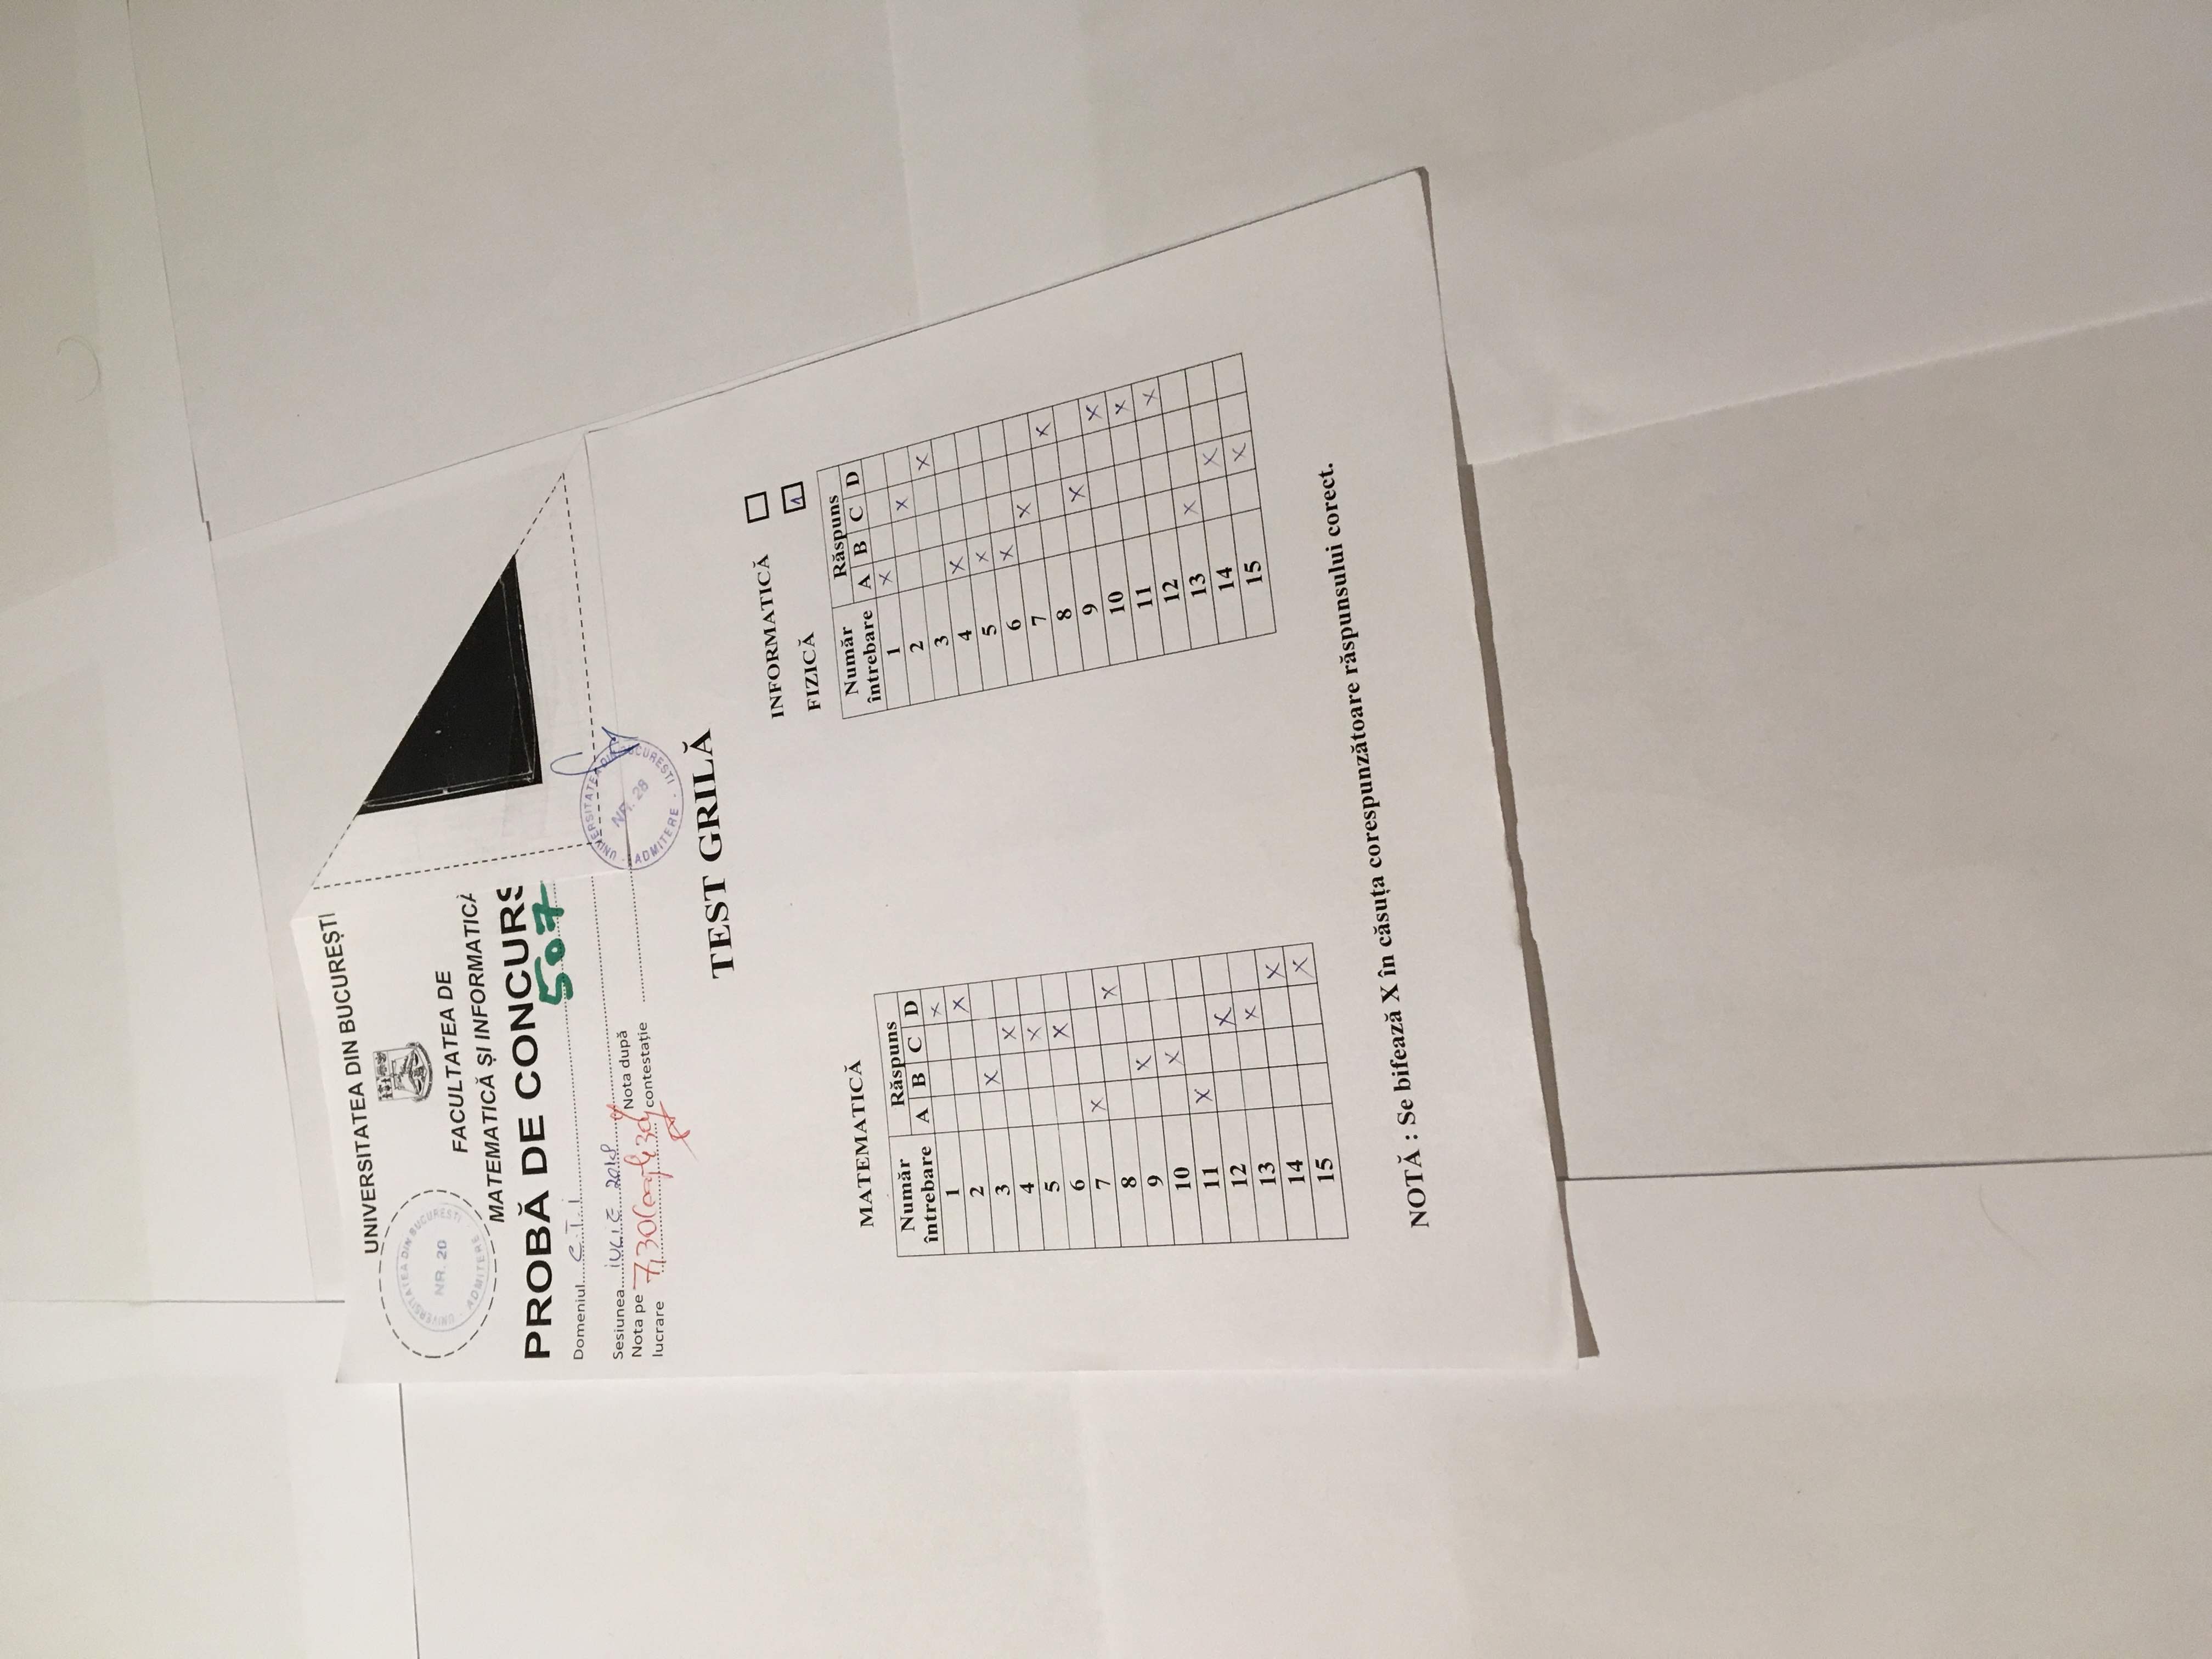 UNIVERSITATEA DIN BUCUREȘTI
UNIVERSITATEA DIN BUCUREȘTI
NR. 20
ADMITERE
FACULTATEA DE
MATEMATICĂ ȘI INFORMATICĂ
PROBĂ DE CONCURS
507
Domeniul.... C.T.I
Sesiunea.... IULIE 2018
Nota pe lucrare 7,30
Nota după contestație
UNIVERSITATEA DIN BUCUREȘTI
NR. 28
ADMITERE
TEST GRILĂ
INFORMATICĂ
FIZICĂ 1
MATEMATICĂ
Număr întrebare Răspuns
A B C D
1 X
2 X
3 X
4 X
5 X
6 X
7 X
8 X
9 X
10 X
11 X
12 X
13 X
14 X
15 X
Număr întrebare Răspuns
A B C D
1 X
2 X
3 X
4 X
5 X
6 X
7 X
8 X
9 X
10 X
11 X
12 X
13 X
14 X
15 X
NOTĂ : Se bifează X în căsuța corespunzătoare răspunsului corect.